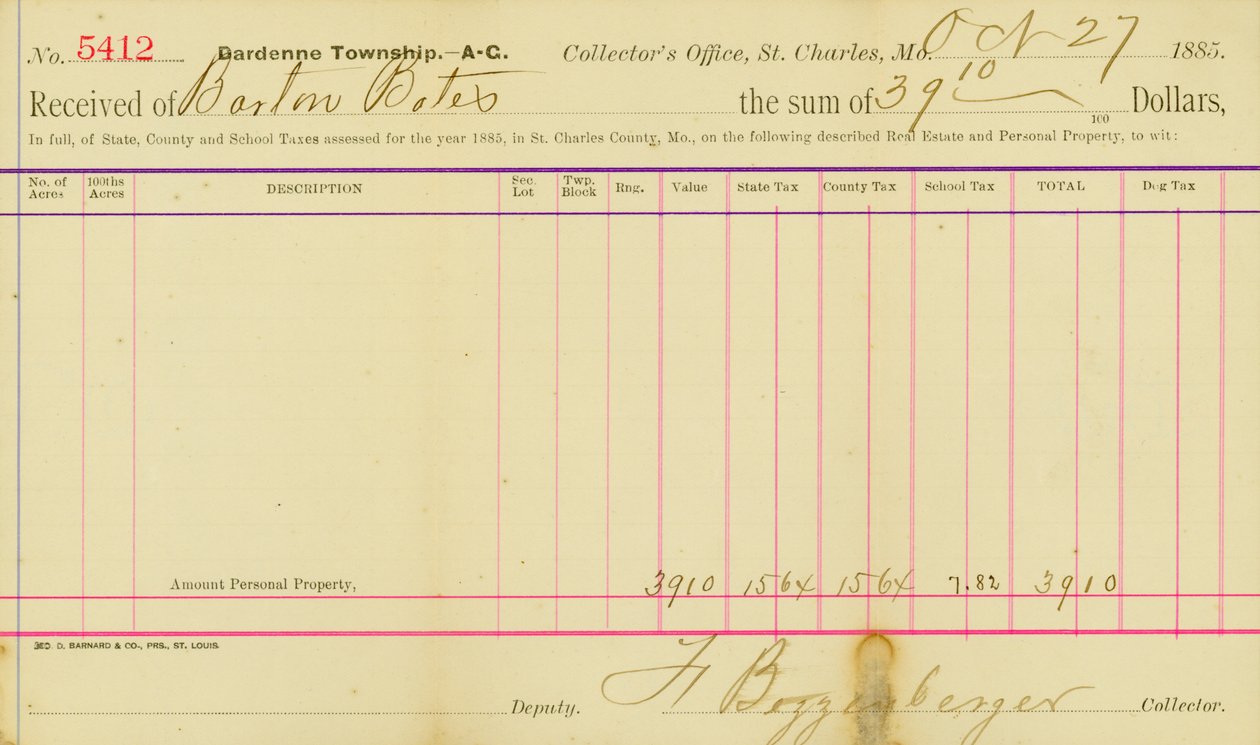 No. 5412 Dardenne Township.—A-G. Collector's Office, St. Charles, Mo. Oct 27 1885.
Received of Barton Bates the sum of 39 10/100 Dollars,
In full, of State, County and School Taxes assessed for the year 1885, in St. Charles County, Mo., on the following described Real Estate and Personal Property, to wit:
No. of Acres 100ths Acres DESCRIPTION Sec. Lot Twp. Block Rng. Value State Tax County Tax School Tax TOTAL Dog Tax
Amount Personal Property, 3910 15 64 15 64 7.82 39 10
GEO. D. BARNARD & CO., PRS., ST. LOUIS.
Deputy. Collector.